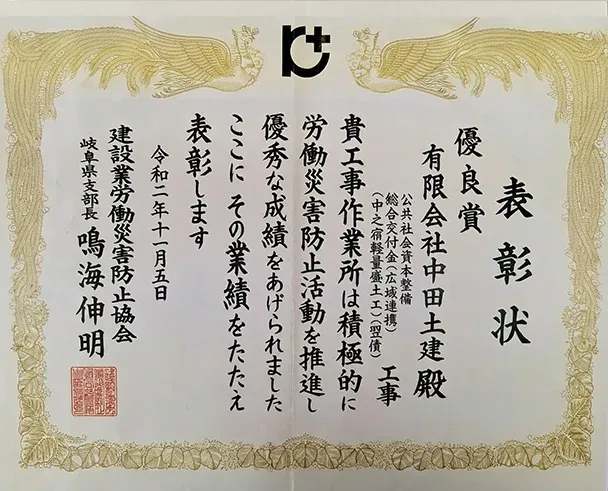 表彰状
優良賞
有限会社中田土建 殿
公共社会資本整備
総合交付金(広域連携)
(中之宿軽量盛土工)(翌債)
工事
貴工事作業所は積極的に
労働災害防止活動を推進し
優秀な成績をあげられました
ここに その業績をたたえ
表彰します
令和二年十一月五日
建設業労働災害防止協会
岐阜県支部長 鳴海伸明